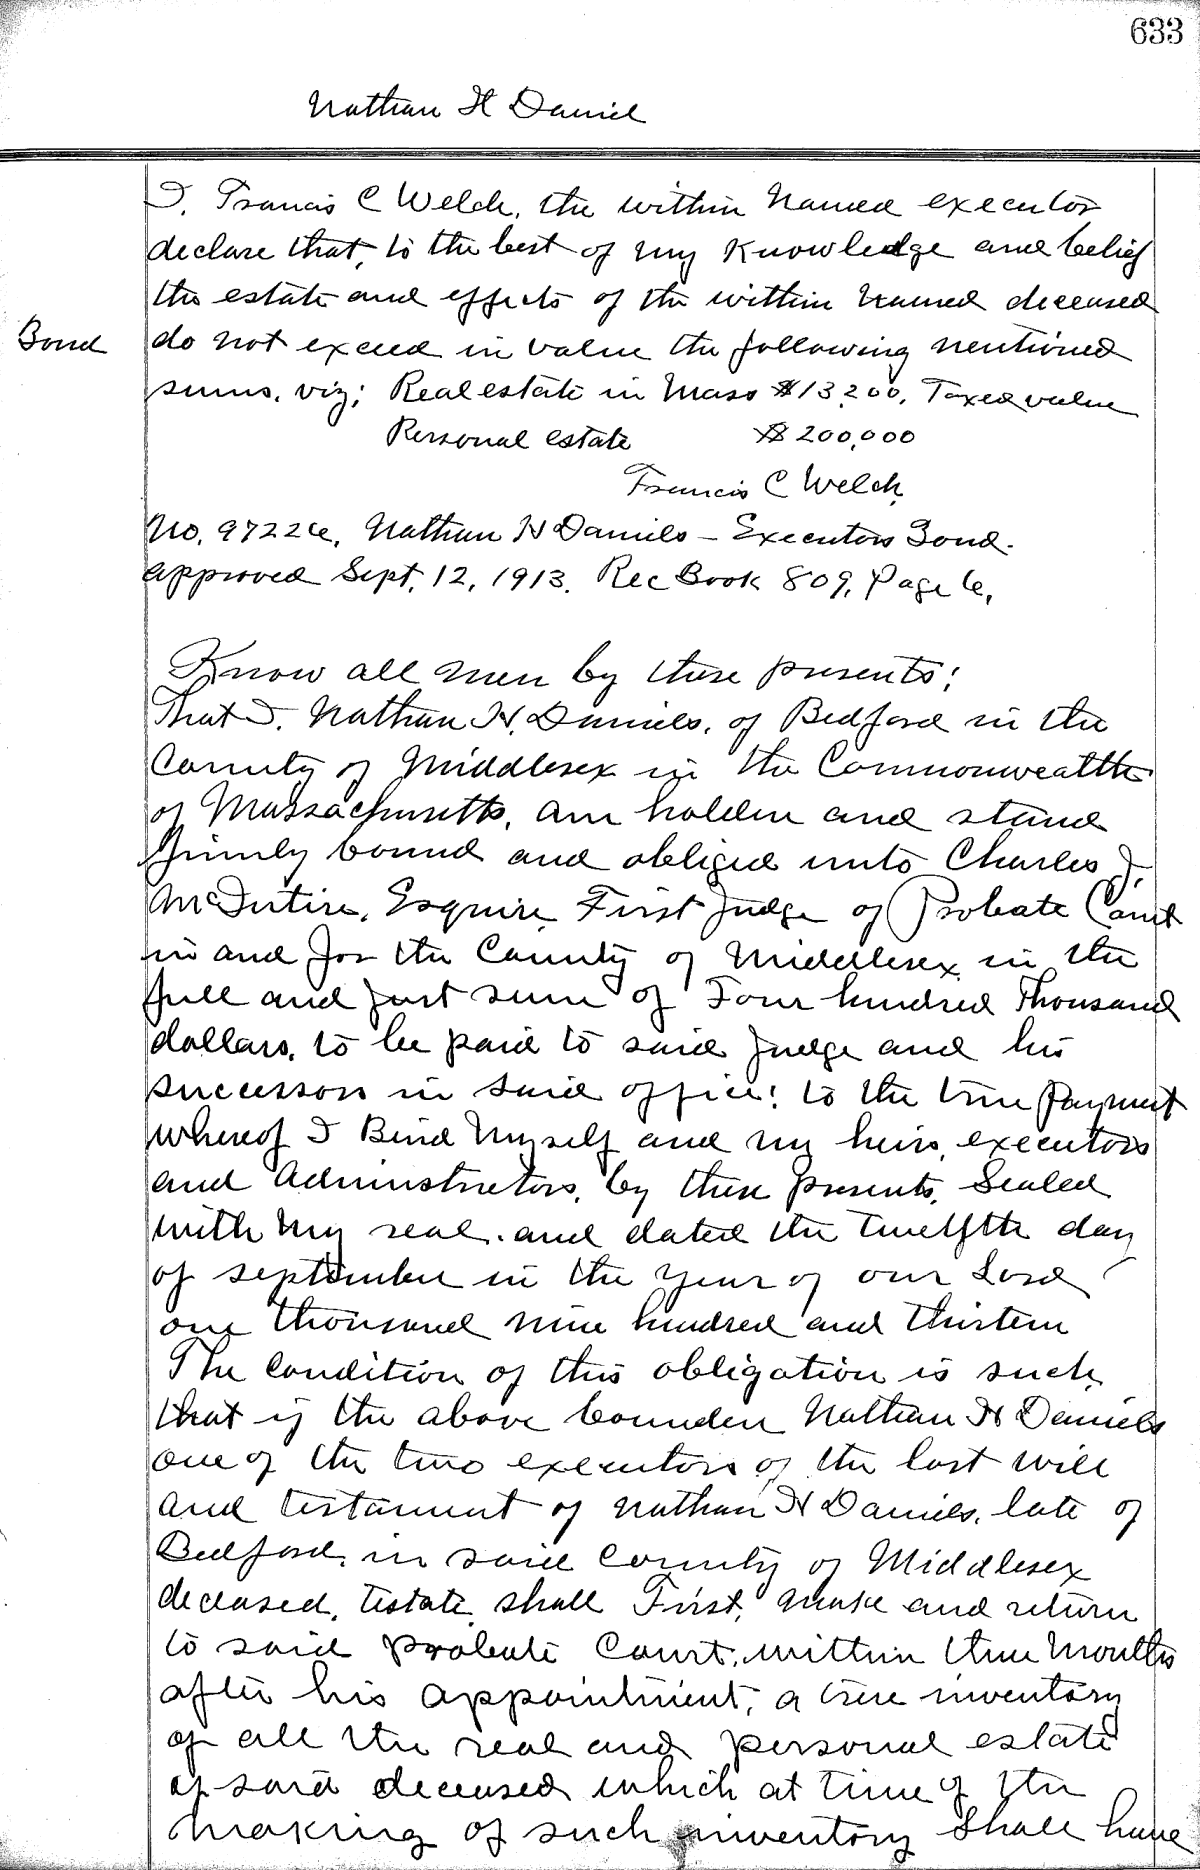 633
Nathan H Daniel
I, Francis C Welch, the within named executor
declare that, to the best of my knowledge and belief
the estate and effects of the within named deceased
Bond
do not exceed in value the following mentioned
sums, viz; Real estate in Mass $13,200, Taxed value
Personal estate $200,000
Francis C Welch,
No. 97226, Nathan H Daniels - Executors Bond.
approved Sept. 12, 1913. Rec Book 809, Page 6,
Know all men by these presents;
That I, Nathan H. Daniels, of Bedford in the
County of Middlesex in the Commonwealth
of Massachusetts, am holden and stand
firmly bound and obliged unto Charles J.
McIntire, Esquire, First Judge of Probate Court
in and for the County of Middlesex, in the
full and just sum of Four hundred Thousand
dollars, to be paid to said judge and his
successors in said office; to the true payment
whereof I Bind Myself and my heirs, executors
and Administrators, by these presents, Sealed
with my seal, and dated the twelfth day
of september in the year of our Lord
one thousand nine hundred and thirteen
The Condition of this obligation is such,
that if the above bounden Nathan H Daniels
one of the two executors of the last will
and testament of Nathan H Daniels, late of
Bedford, in said County of Middlesex
deceased, testate, shall First, make and return
to said probate Court, within three Months
after his appointment, a true inventory
of all the real and personal estate
of said deceased which at time of the
making of such inventory shall have